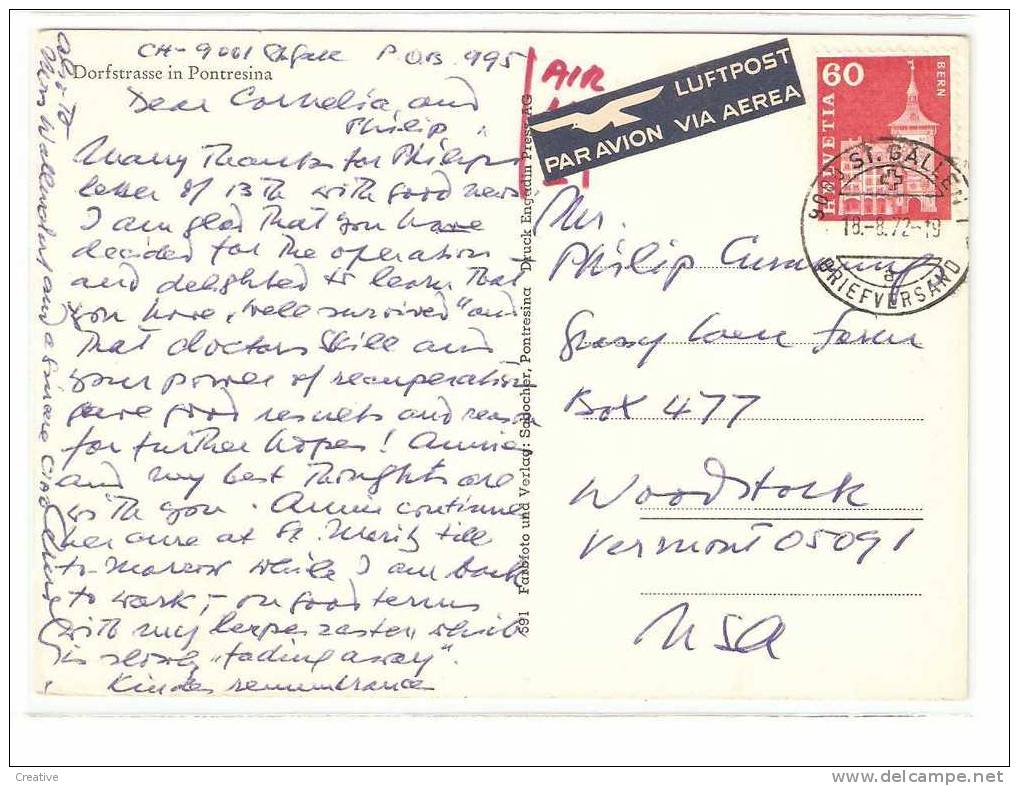 CH-9001 St. Gall P.O.B. 995
Dorfstrasse in Pontresina
Dear Cornelia, and
Philip,
Many Thanks for Philips
letter of 13th with good news.
I am glad that you have
decided for the operation
and delighted to learn that
you have „well survived" and
that doctors skill and
your power of recuperation
gave good results and reason
for further hopes! Annie
and my best thoughts are
with you. Annie continue
her cure at St. Moritz till
to-morrow while I am back
to work, - on good terms
with my herpes zoster which
is slowly „fading away".
Kindes remembrance
also to
Miss and a sincere ciao
591 Farbfoto und Verlag: Schocher, Pontresina Druck Engadin Press AG
AIR
LUFTPOST
PAR AVION VIA AEREA
60
HELVETIA
BERN
ST. GALLEN 1
18.-8.72-19
a
BRIEFVERSAND
Mr.
Philip Cummings
Box 477
Woodstock
Vermont 05091
USA
Creative
www.delcampe.net